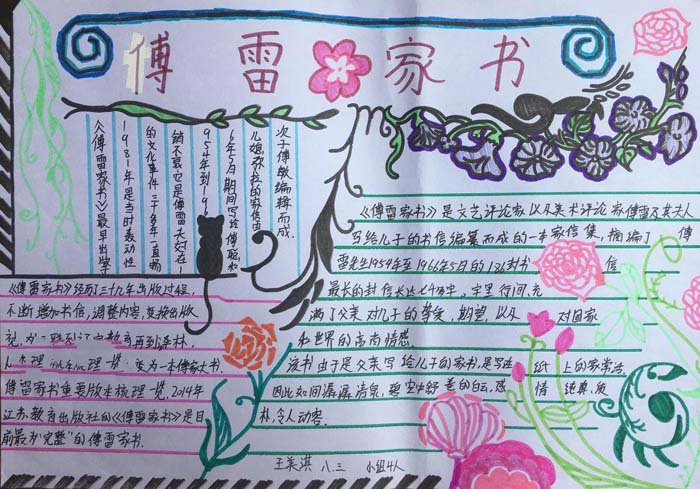 傅雷家书
《傅雷家书》最早出版于
1981年是当时轰动性
的文化事件三十多年一直畅
销不衰它是傅雷夫妇在1
954年到196
6年5月期间写给傅聪和
儿媳弥拉的家信由
次子傅敏编辑而成
《傅雷家书》经历三十九年出版过程,
不断增加书信,调整内容,变换出版
社,为 教育再到译林
理一 变为一本傅家大书.
傅雷家书重要版本梳理一览,2014年
江苏教育出版社的《傅雷家书》是目
前最为“完整”的傅雷家书.
《傅雷家书》是文艺评论家以及美术评论家傅雷及其夫人
写给儿子的书信编纂而成的一本家信集,摘编了 傅
雷先生1954年至1966年5月的136封书 信
最长的封信长达七千多字.字里行间,充
满了父亲对儿子的挚爱,期望,以及 对国家
和世界的高尚情感.
该书由于是父亲写给儿子的家书,是写在 纸 上的家常话,
因此如同潺潺清泉,碧空中舒卷的白云,感 情 纯真、质
朴,令人动容.
王美淇 八.三 小组4人